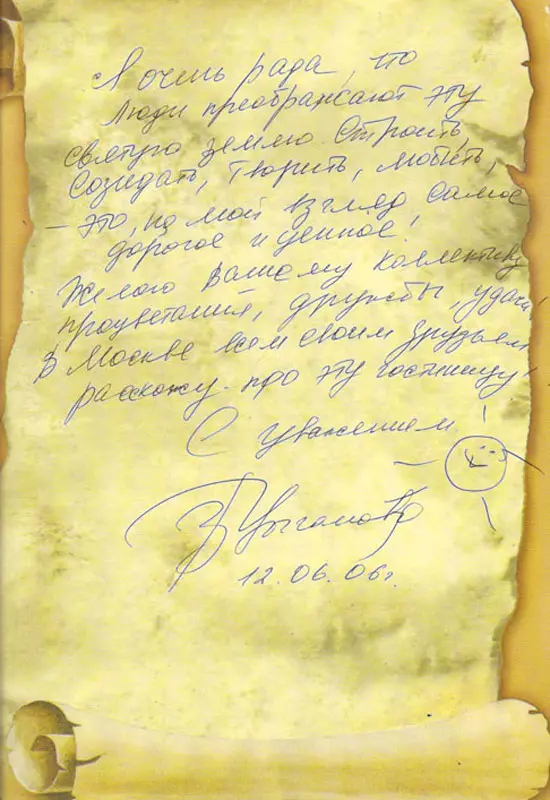 Я очень рада, что
люди преображают эту
святую землю. Строить,
созидать, творить, любить,
– это, на мой взгляд самое
дорогое и ценное!
Желаю Вашему коллективу
процветания, дружбы, удачи!
В Москве всем своим друзьям
расскажу про эту гостиницу!
С уважением
В Цыганова
12.06.06г.